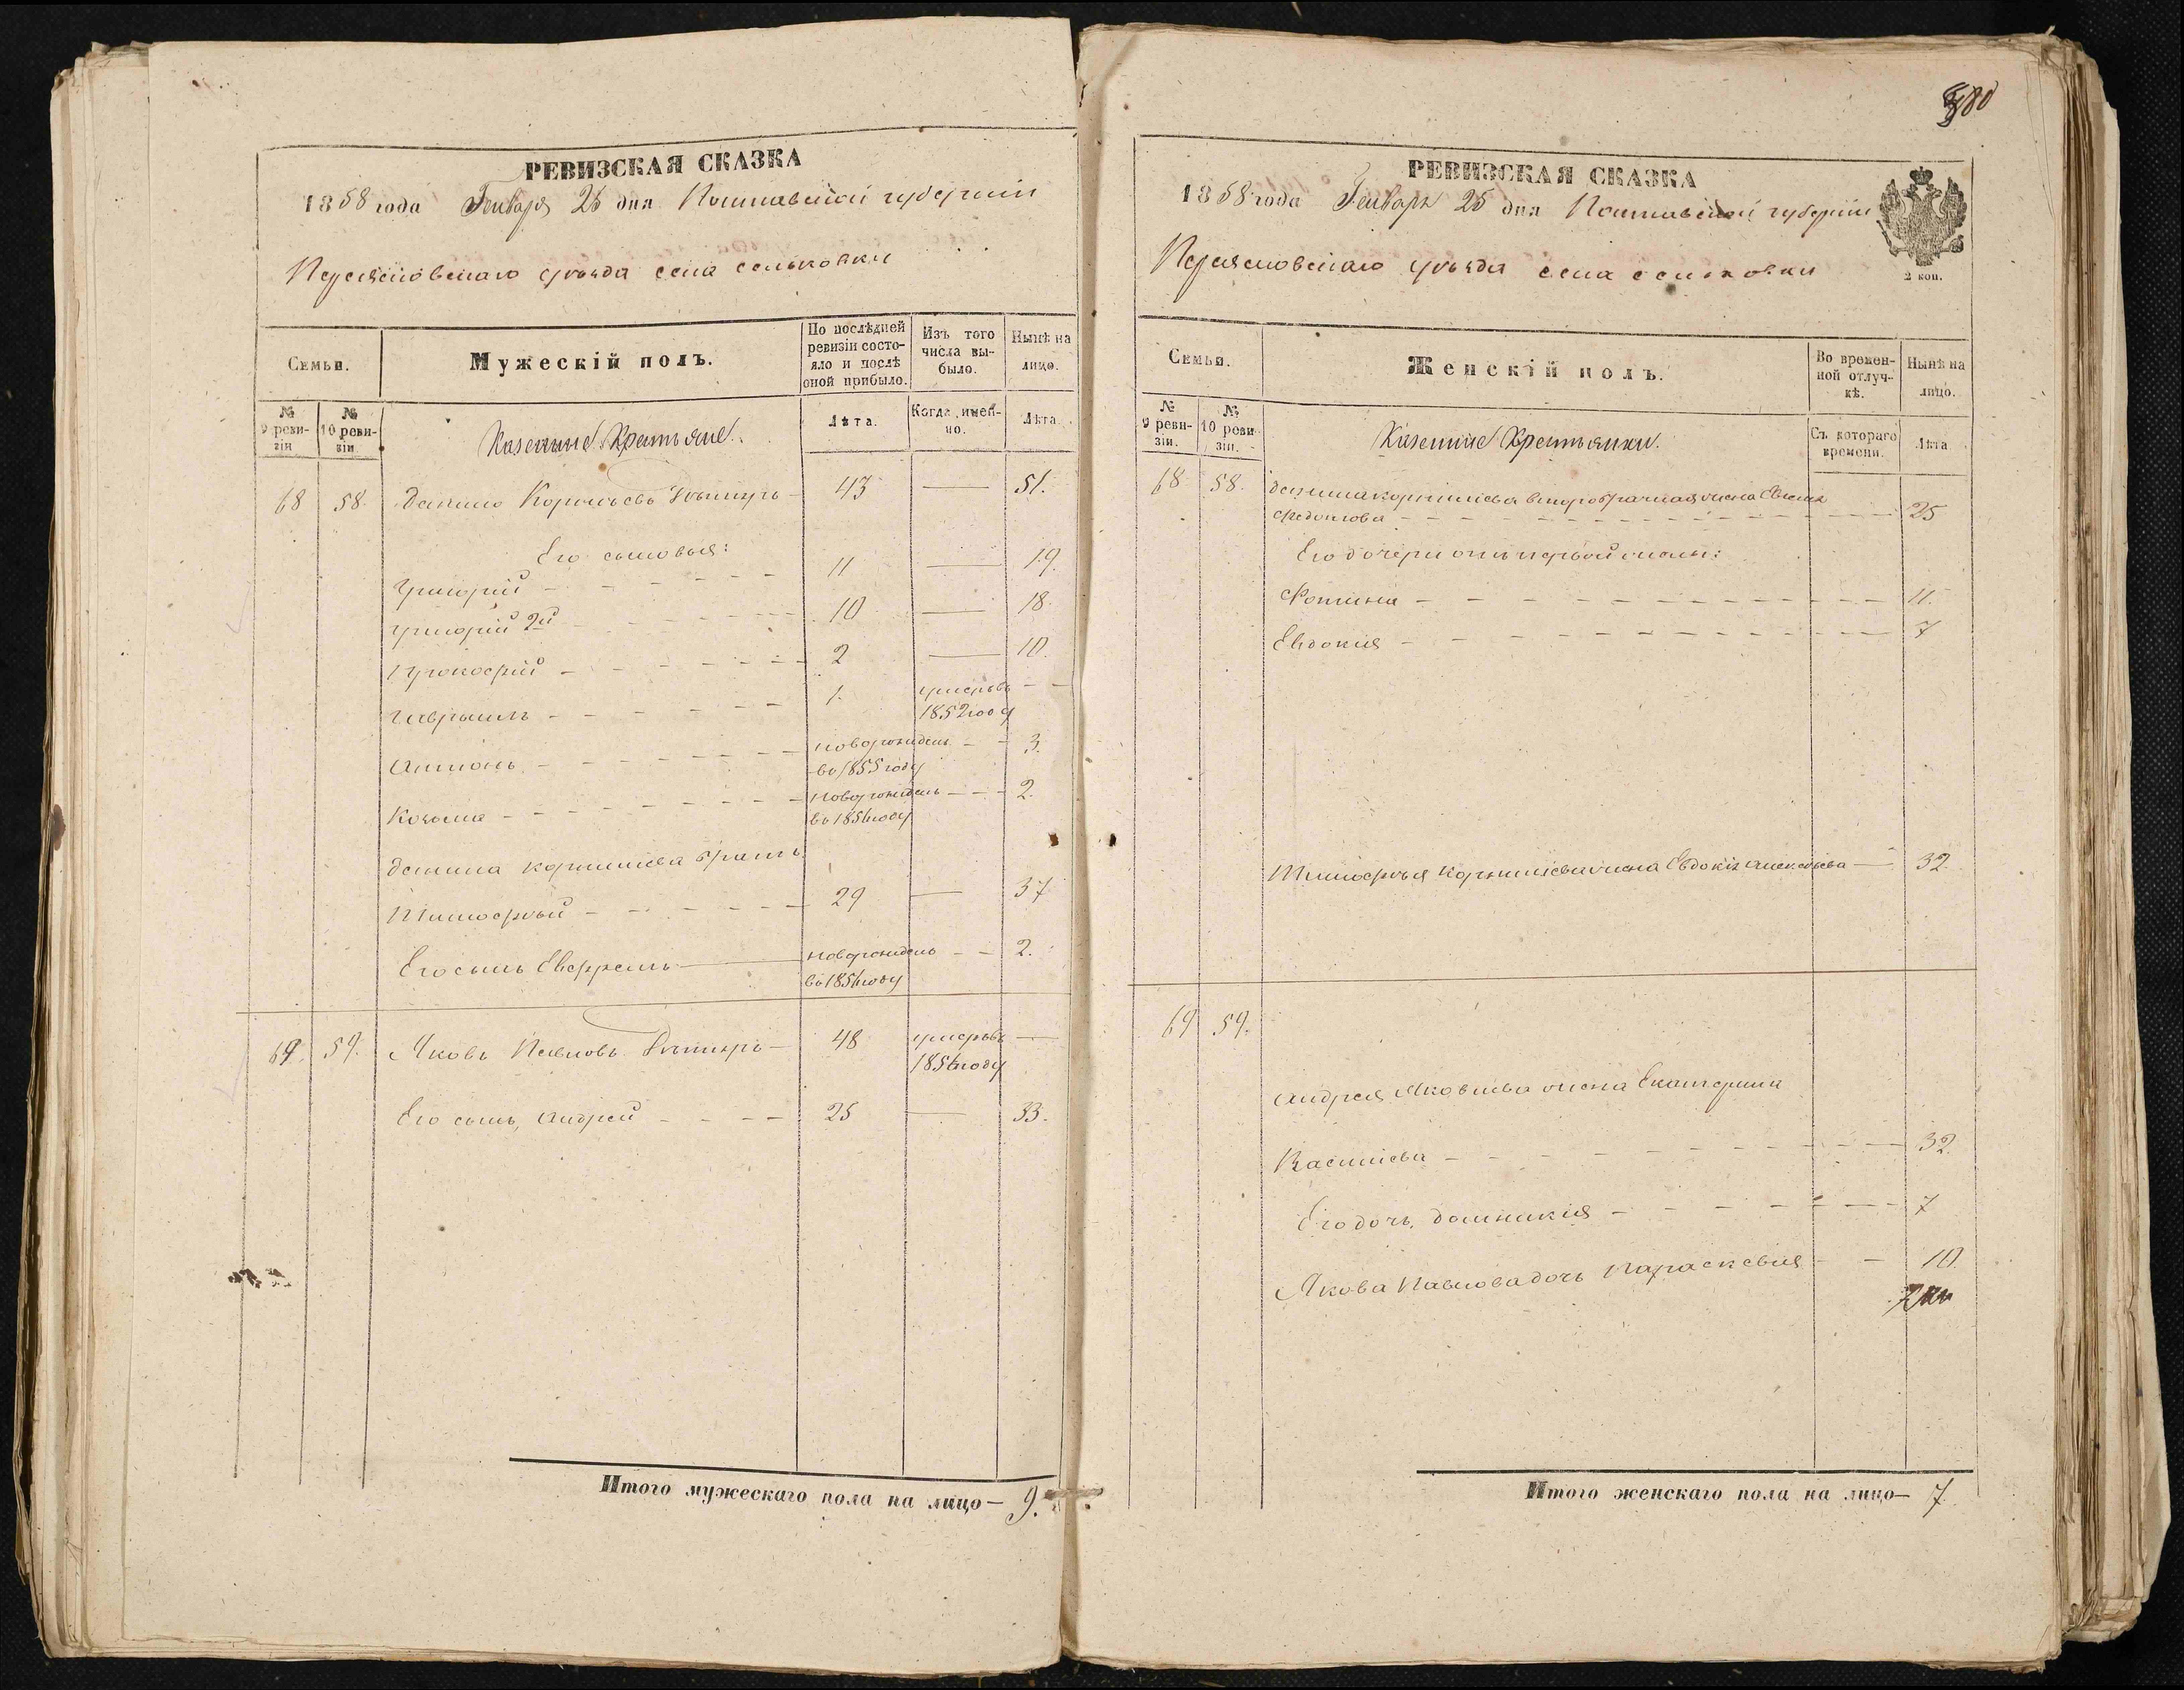 РЕВИЗСКАЯ СКАЗКА
1858 года Генваря 25 дня Полтавской губернии
Переяславскаго уѣзда села сеньковки
Семьи.
Мужескій полъ.
По послѣдней ревизіи состояло и послѣ оной прибыло.
Изъ того числа выбыло.
Нынѣ на лицо.
№ 9 ревизіи
№ 10 ревизіи
Казенные Крестьяне.
Лѣта.
Когда имен-но.
Лѣта.
68 58. Данило Корнильевъ 43 — 51.
Его сыновья:
Григорій 11 — 19.
Григорій 2й 10 — 18.
Прокофій 2 — 10.
Гавріилъ 1. умеръ въ 1852 году
Антонъ новорожденъ во 1855 году 3.
Козьма новорожденъ во 1856 году 2.
Данила корниліева братъ
Тимофѣй 29 — 37
Его сынъ Евфремъ новорожденъ во 1856 году 2.
69. 59. Яковъ Павловъ 48 умеръ въ 1856 году
Его сынъ, Андрей 25 — 33.
Итого мужескаго пола на лицо — 9.
380
РЕВИЗСКАЯ СКАЗКА
1858 года Генваря 25 дня Полтавской губерніи
2 коп.
Переяславскаго уѣзда села сеньковки
Семьи.
Женскій полъ.
Во времен-ной отлуч-кѣ.
Нынѣ на лицо.
№ 9 реви-зіи.
№ 10 реви-зіи.
Казенные Крестьянки.
Съ котораго времени.
Лѣта
68 58. данила корниліева второбрачная жена
Федорова 25
Его дочери отъ первой жены:
Фотина 11.
Евдокія 7
Тимофѣя Корниліева жена Евдокія алексѣева 32
69 59.
Андрея Яковлева жена Екатерина
Василіева 32
Его дочь, домникія 7
Якова Павлова дочь Параскевія 10
Итого женскаго пола на лицо — 7.